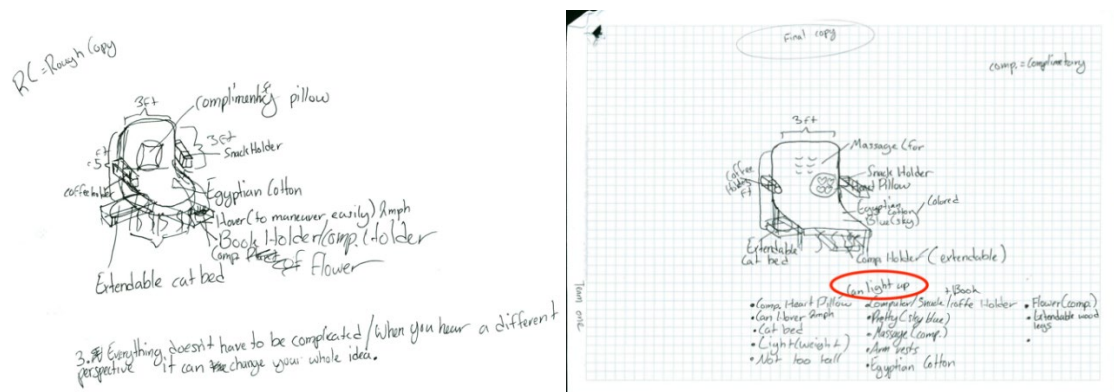 RC = Rough Copy
complimentry pillow
3ft
3ft
Snack Holder
5 ft
coffee holder
Egyptian Cotton
Hover (to maneuver easily) 2mph
Book Holder/Comp. Holder
Comp. Flower
Extendable cat bed
3. Everything doesn't have to be complicated/When you hear a different
perspective it can change your whole idea.
Final copy
comp. = Complimetory
3ft
Massage (for
Coffee
Holder
ft
Snack Holder
Pillow
Egyptian Cotton/Colored
Blue (sky)
Extendable
Cat bed
Comp. Holder (extendable)
Can light up
Team one
+ Book
• Comp. Heart Pillow
• Can Hover 2mph
• Cat bed
• Light (weight)
• Not too tall
• Computer/Snack/Coffe Holder
• Pretty (sky blue)
• Massage (comp.)
• Arm rests
• Egyptian Cotton
• Flower (comp.)
• Extendable wood
legs